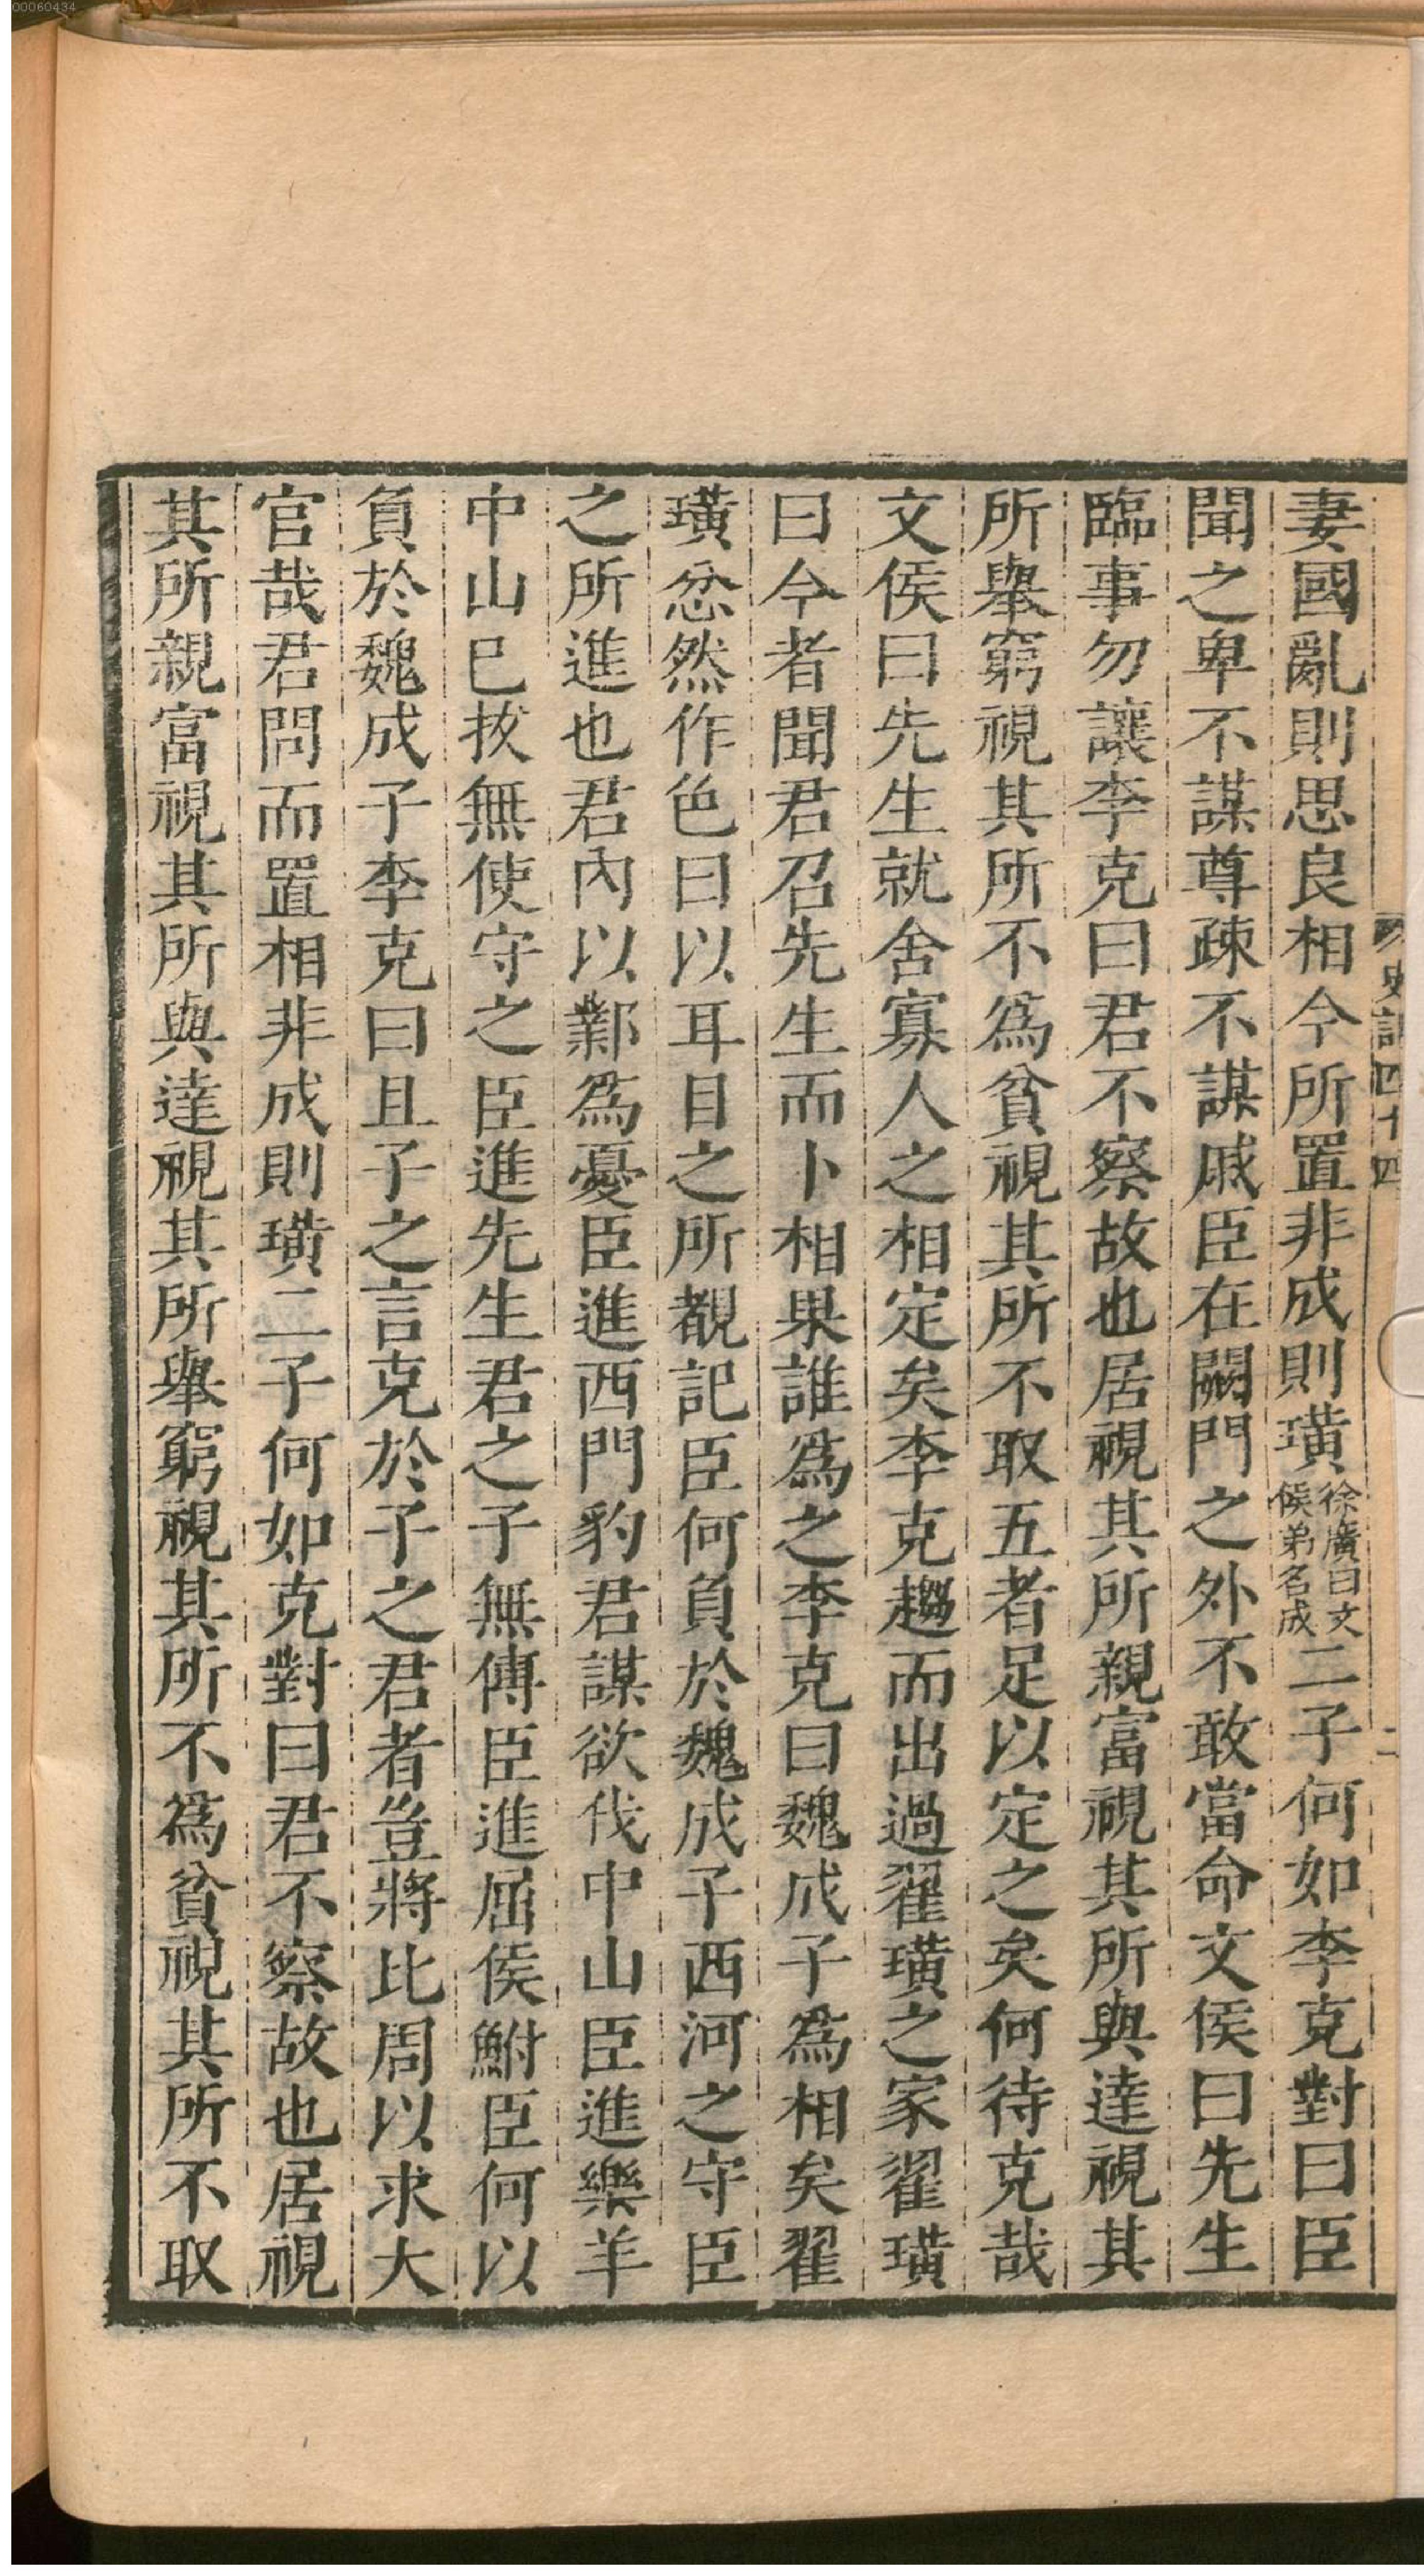 妻國亂則思良相今所置非成則璜徐廣曰文侯弟名成二子何如李克對曰臣
聞之卑不謀尊疎不謀戚臣在闕門之外不敢當命文侯曰先生
臨事勿讓李克曰君不察故也居視其所親富視其所與達視其
所舉窮視其所不爲貧視其所不取五者足以定之矣何待克哉
文侯曰先生就舍寡人之相定矣李克趨而出過翟璜之家翟璜
曰今者聞君召先生而卜相果誰爲之李克曰魏成子爲相矣翟
璜忿然作色曰以耳目之所覩記臣何負於魏成子西河之守臣
之所進也君內以鄴爲憂臣進西門豹君謀欲伐中山臣進樂羊
中山已拔無使守之臣進先生君之子無傅臣進屈侯鮒臣何以
負於魏成子李克曰且子之言克於子之君者豈將比周以求大
官哉君問而置相非成則璜二子何如克對曰君不察故也居視
其所親富視其所與達視其所舉窮視其所不爲貧視其所不取
史記四十四
二
00060434